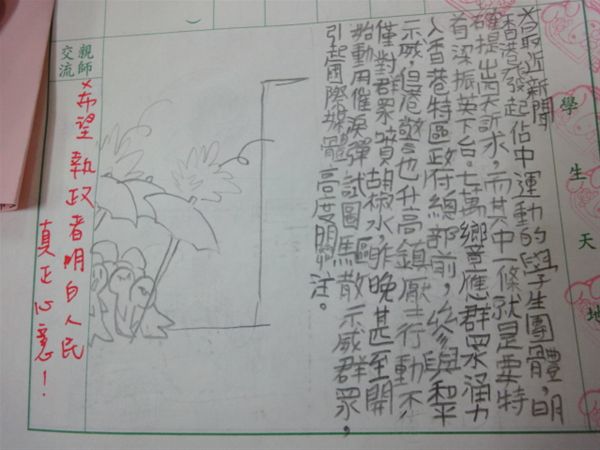 學生天地
×最近新聞
香港發起佔中運動的學生團體，明
確提出四大訴求，而其中一條就是要特
首梁振英下台。七萬響應群眾涌
入香港特區政府總部前，參與和平
示威，但港警也升高鎮壓行動不
僅對群眾噴胡椒水，昨晚甚至開
始動用催淚彈試圖驅散示威群眾，
引起國際媒體高度關注。
親師
交流
×希望執政者明白人民
真正心意！